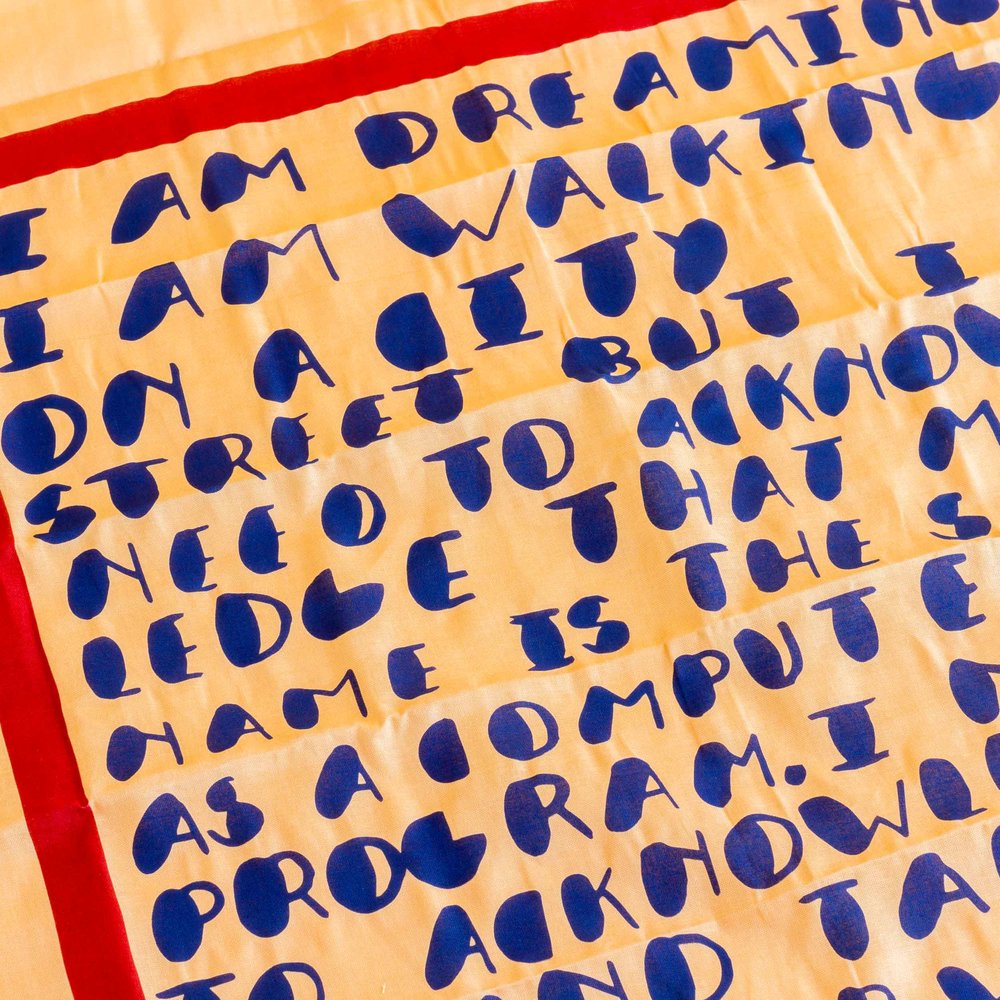 I AM DREAMING
I AM WALKING
ON A CITY
STREET BUT I
NEED TO ACKNOW
LEDGE THAT M
NAME IS THE S
AS A COMPUTE
PROGRAM. I N
TO ACKNOWLE
AND TA